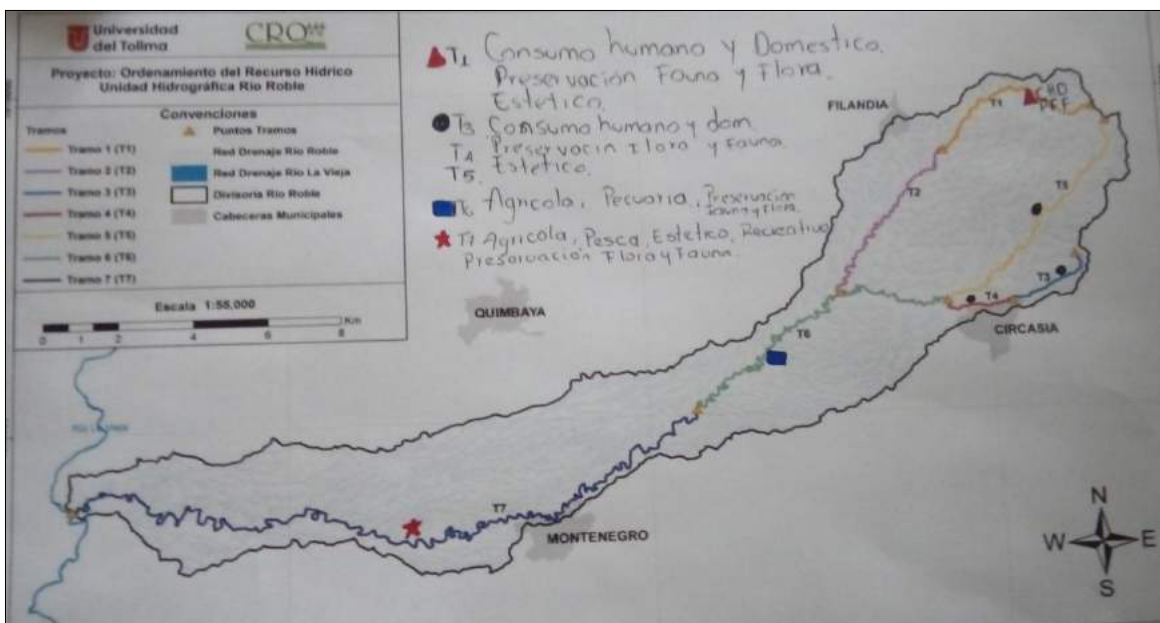 Universidad
del Tolima
CRQ
Proyecto: Ordenamiento del Recurso Hídrico
Unidad Hidrográfica Río Roble
Convenciones
Tramos
Tramo 1 (T1)
Tramo 2 (T2)
Tramo 3 (T3)
Tramo 4 (T4)
Tramo 5 (T5)
Tramo 6 (T6)
Tramo 7 (T7)
Puntos Tramos
Red Drenaje Río Roble
Red Drenaje Río La Vieja
Divisoria Río Roble
Cabeceras Municipales
Escala 1:55,000
0 1 2 4 6 8 Km
T1 Consumo humano y Domestico.
Preservación Fauna y Flora.
Estetico.
T3 Consumo humano y dom
T4 Preservacin Flora y Fauna.
T5. Estetico.
T6 Agricola, Pecuaria, Preservacion
Fauna y Flora
T7 Agricola, Pesca, Estetico, Recreativo
Preservación Flora y Fauna.
FILANDIA
T1
CHD
PFF
T2
T5
T3
T4
CIRCASIA
QUIMBAYA
T6
T7
MONTENEGRO
N
W E
S